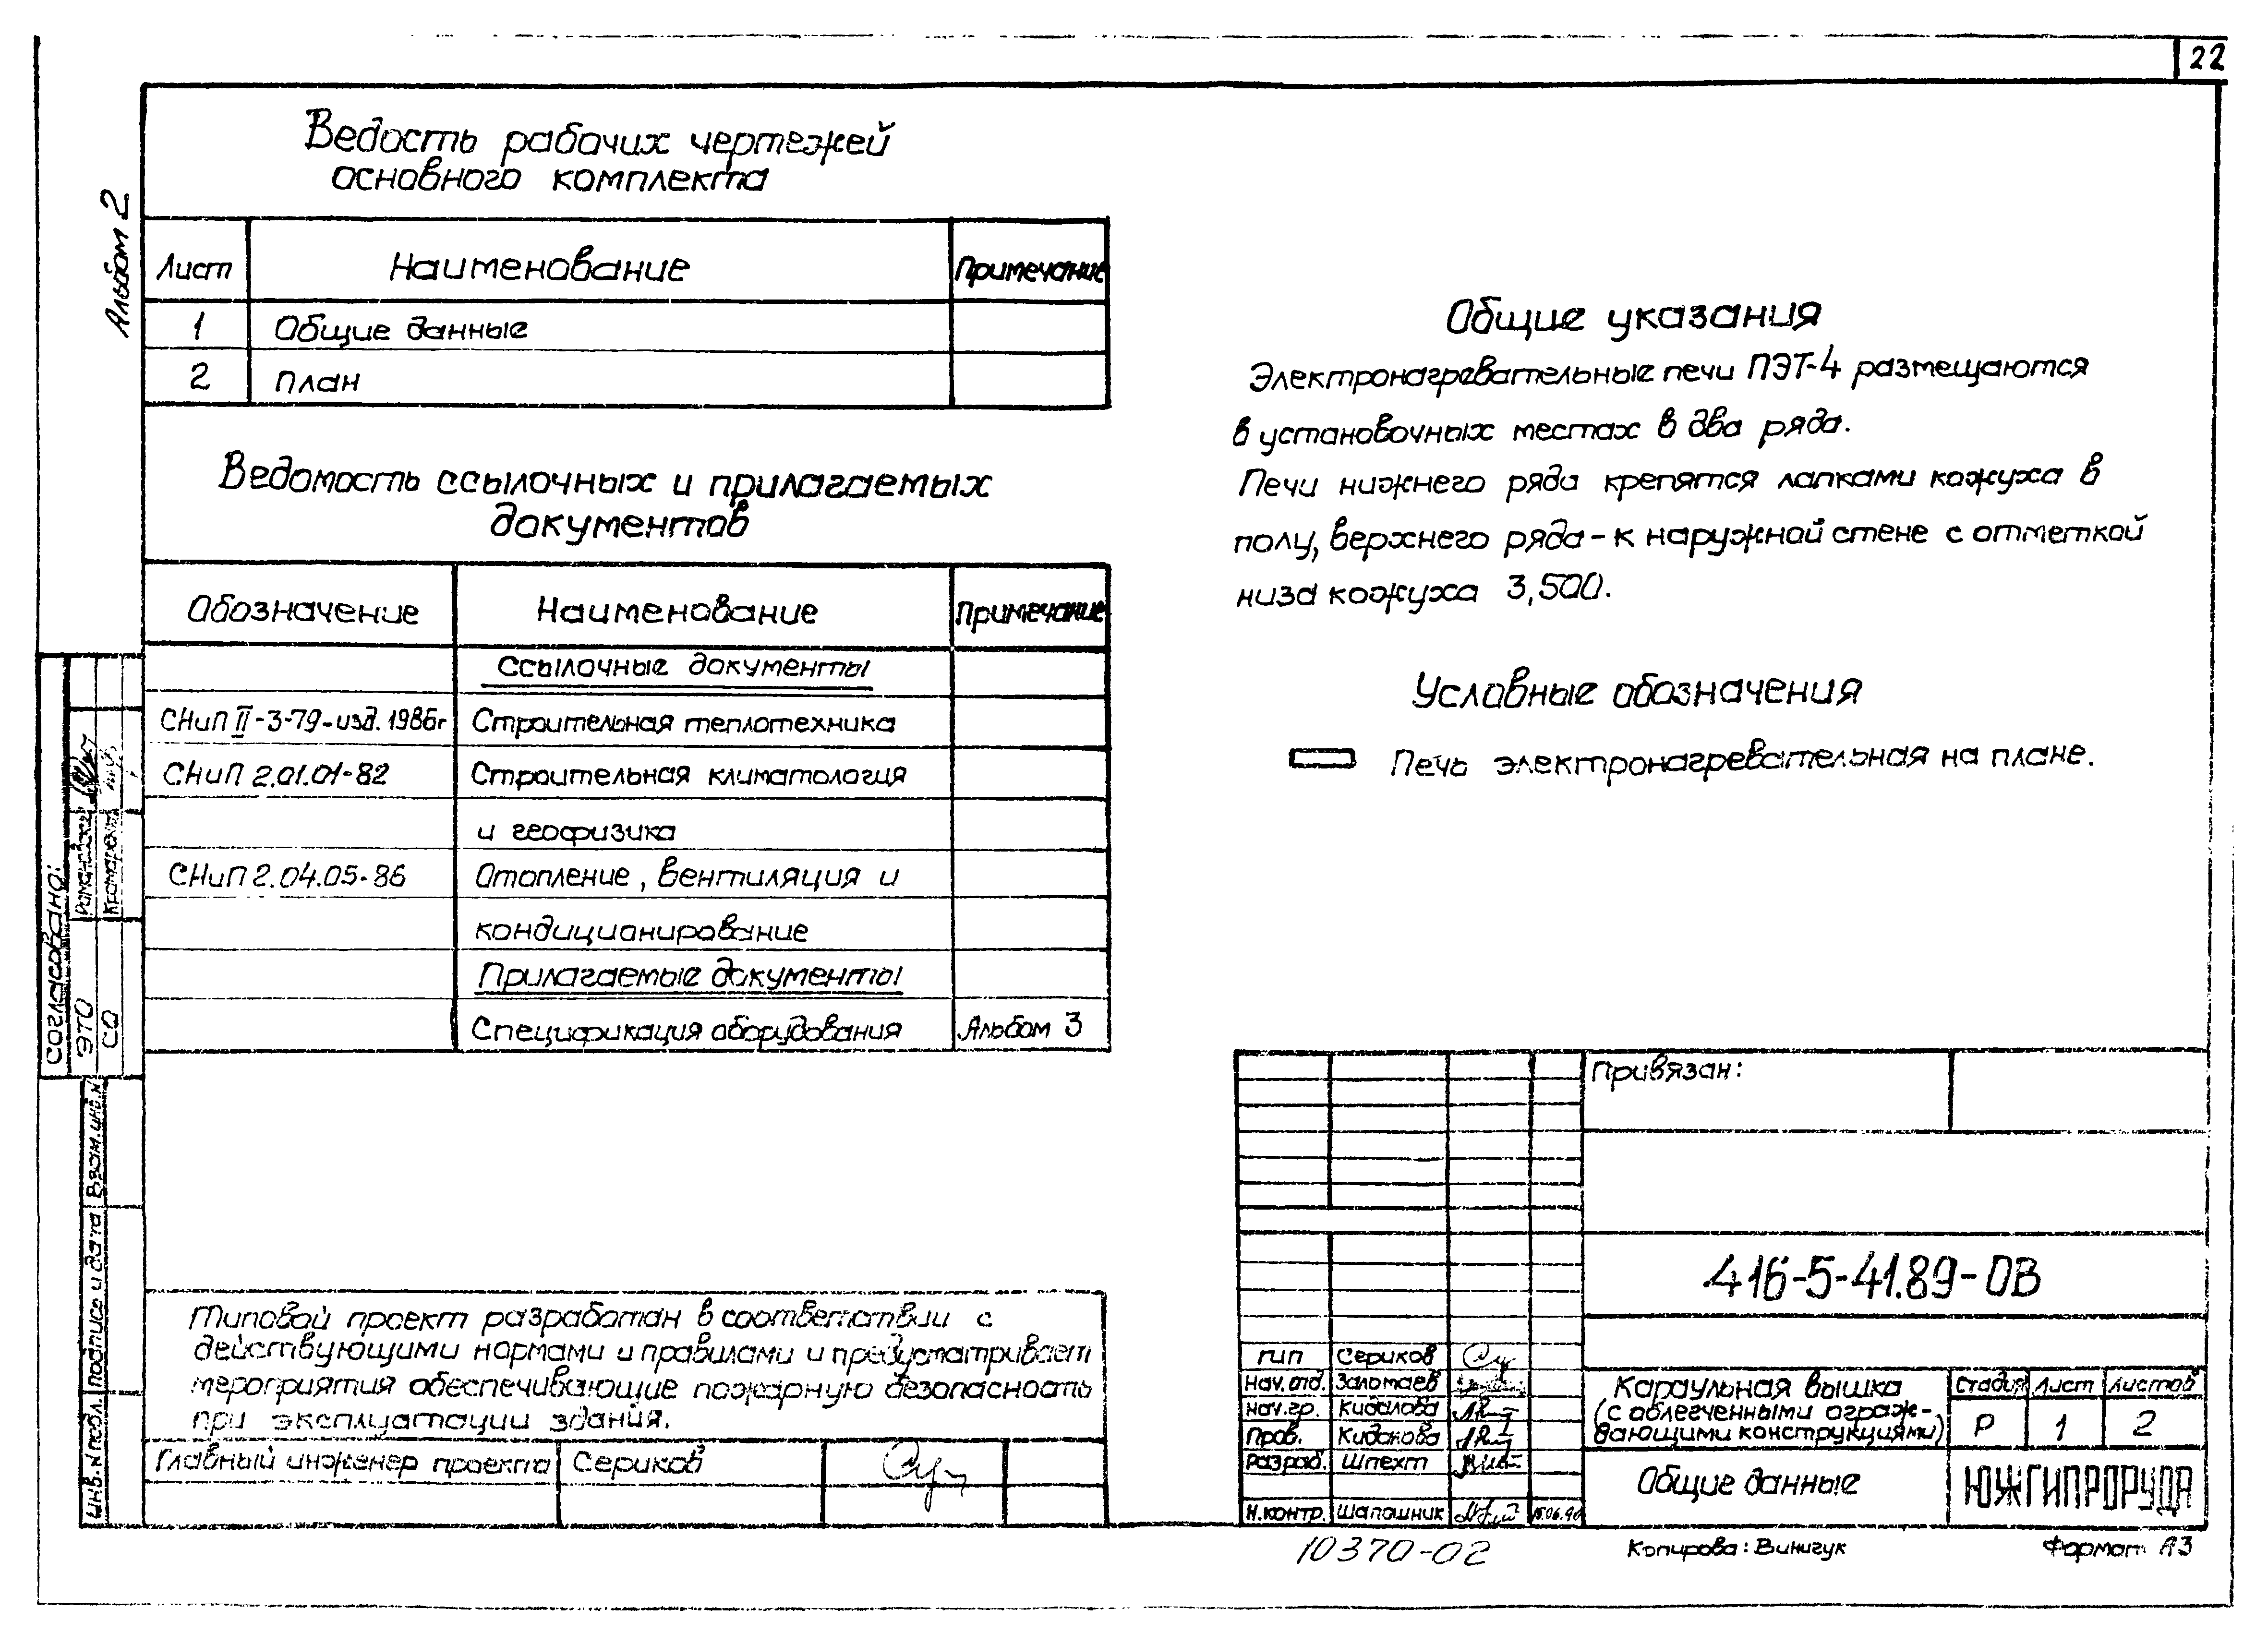 22
Альбом 2
Ведость рабочих чертежей
основного комплекта
Лист Наименование Примечание
1 Общие данные
2 План
Ведомость ссылочных и прилагаемых
документов
Обозначение Наименование Примечание
Ссылочные документы
СНиП II-3-79-изд. 1986г Строительная теплотехника
СНиП 2.01.01-82 Строительная климатология
и геофизика
СНиП 2.04.05-86 Отопление, вентиляция и
кондиционирование
Прилагаемые документы
Спецификация оборудования Альбом 3
Общие указания
Электронагревательные печи ПЭТ-4 размещаются
в установочных местах в два ряда.
Печи нижнего ряда крепятся лапками кожуха в
полу, верхнего ряда - к наружной стене с отметкой
низа кожуха 3,500.
Условные обозначения
Печь электронагревательная на плане.
Согласовано:
ЭТО
СО
Взам. инв. N
Подпись и дата
Инв. N подл.
Типовой проект разработан в соответствии с
действующими нормами и правилами и предусматривает
мероприятия обеспечивающие пожарную безопасность
при эксплуатации здания.
Главный инженер проекта Сериков
Привязан:
416-5-41.89-ОВ
ГИП Сериков
Нач. отд. Заломаев
Нач. гр. Кидалова
Пров. Кидалова
Разраб. Шпехт
Н. контр. Шапошник 15.06.90
Караульная вышка
(с облегченными ограж-
дающими конструкциями)
Стадия Лист Листов
Р 1 2
Общие данные
ЮЖГИПРОРУДА
10370-02
Копирова: Винигук
Формат А3